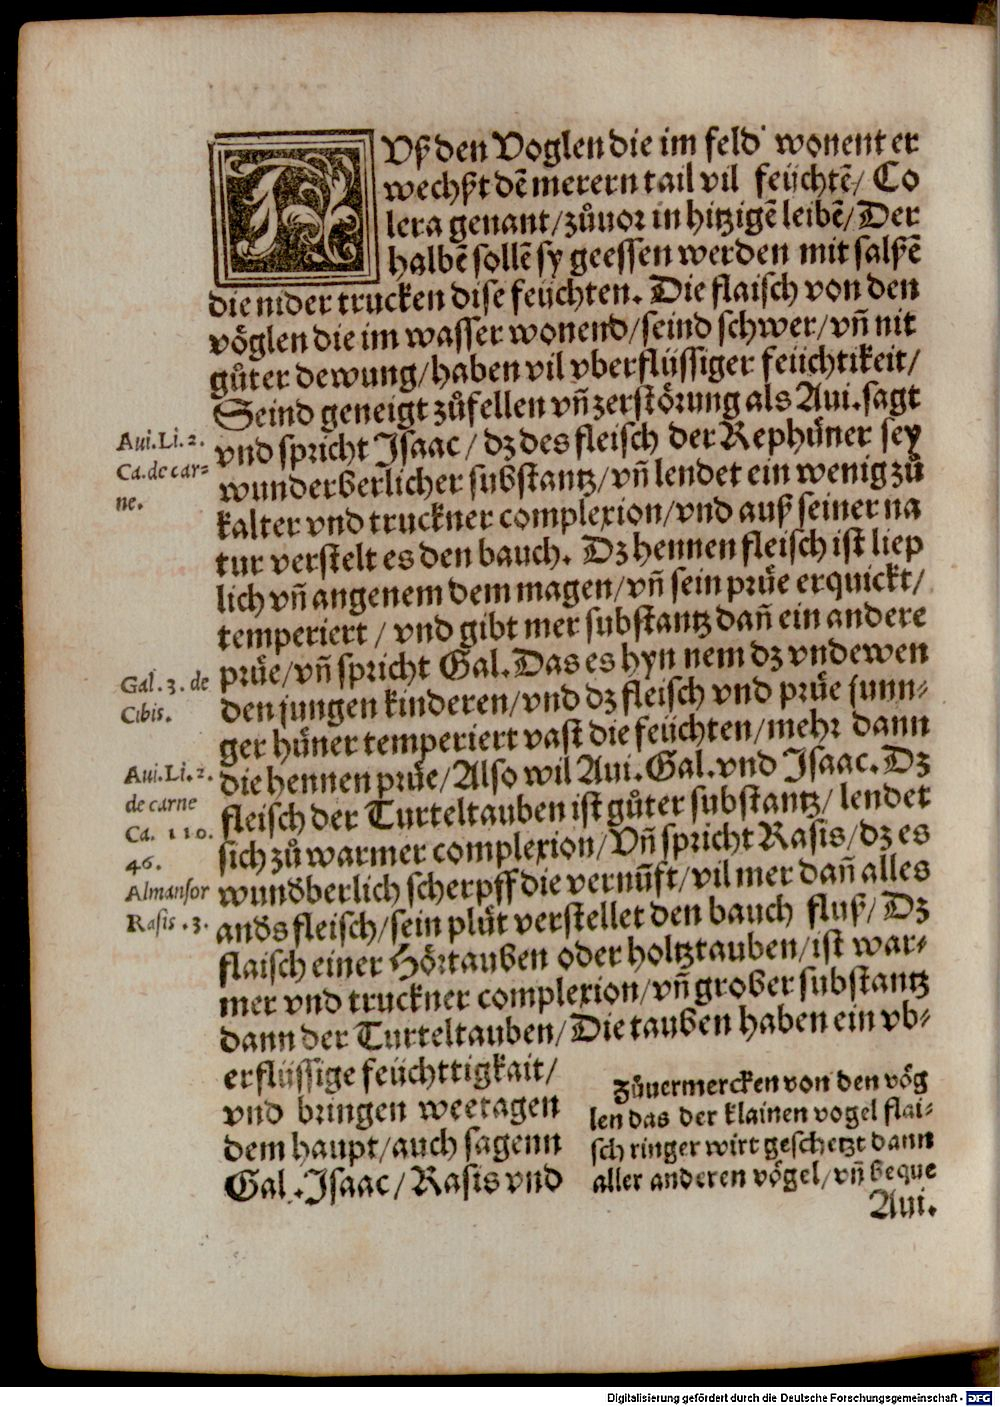 Vß den Voglen die im feld wonent er
wechßt dē merern tail vil feüchtē/ Co
lera genant/zůuor in hitzigē leibē/Der
halbē sollē sy geessen werden mit salßē
die nider trucken dise feüchten. Die flaisch von den
vöglen die im wasser wonend/seind schwer/vñ nit
gůter dewung/haben vil vberflüssiger feüchtikeit/
Seind geneigt zůfellen vñ zerstörung als Aui.sagt
vnd spricht Isaac/ dz des fleisch der Rephüner sey
wunderberlicher substantz/vñ lendet ein wenig zů
kalter vnd truckner complexion/vnd auß seiner na
tur verstelt es den bauch. Dz hennen fleisch ist liep
lich vñ angenem dem magen/vñ sein prüe erquickt/
temperiert / vnd gibt mer substantz dañ ein andere
prüe/vñ spricht Gal.Das es hyn nem dz vndewen
den jungen kinderen/vnd dz fleisch vnd prüe junn⸗
ger hüner temperiert vast die feüchten/mehr dann
die hennen prüe/Also wil Aui.Gal.vnd Isaac.Dz
fleisch der Turteltauben ist gůter substantz/ lendet
sich zů warmer complexion/Vñ spricht Rasis/dz es
wunđberlich scherpff die vernũft/vil mer dañ alles
anđs fleisch/sein plůt verstellet den bauch fluß/ Dz
flaisch einer Hörtauben oder holtztauben/ist war⸗
mer vnd truckner complexion/vñ grober substantz
dann der Turteltauben/Die tauben haben ein vb⸗
erflüssige feüchttigkait/
vnd bringen weetagen
dem haupt/auch sagenn
Gal.Isaac/Rasis vnd
Aui.Li.2.
Ca.de car⸗
ne.
Gal.3.de
Cibis.
Aui.Li.2.
de carne
Ca. 110.
46.
Almansor
Rasis.3.
Zůuermercken von den vög
len das der klainen vogel flai⸗
sch ringer wirt geschetzt dann
aller anderen vögel/vñ beque
Aui.
Digitalisierung gefördert durch die Deutsche Forschungsgemeinschaft - DFG